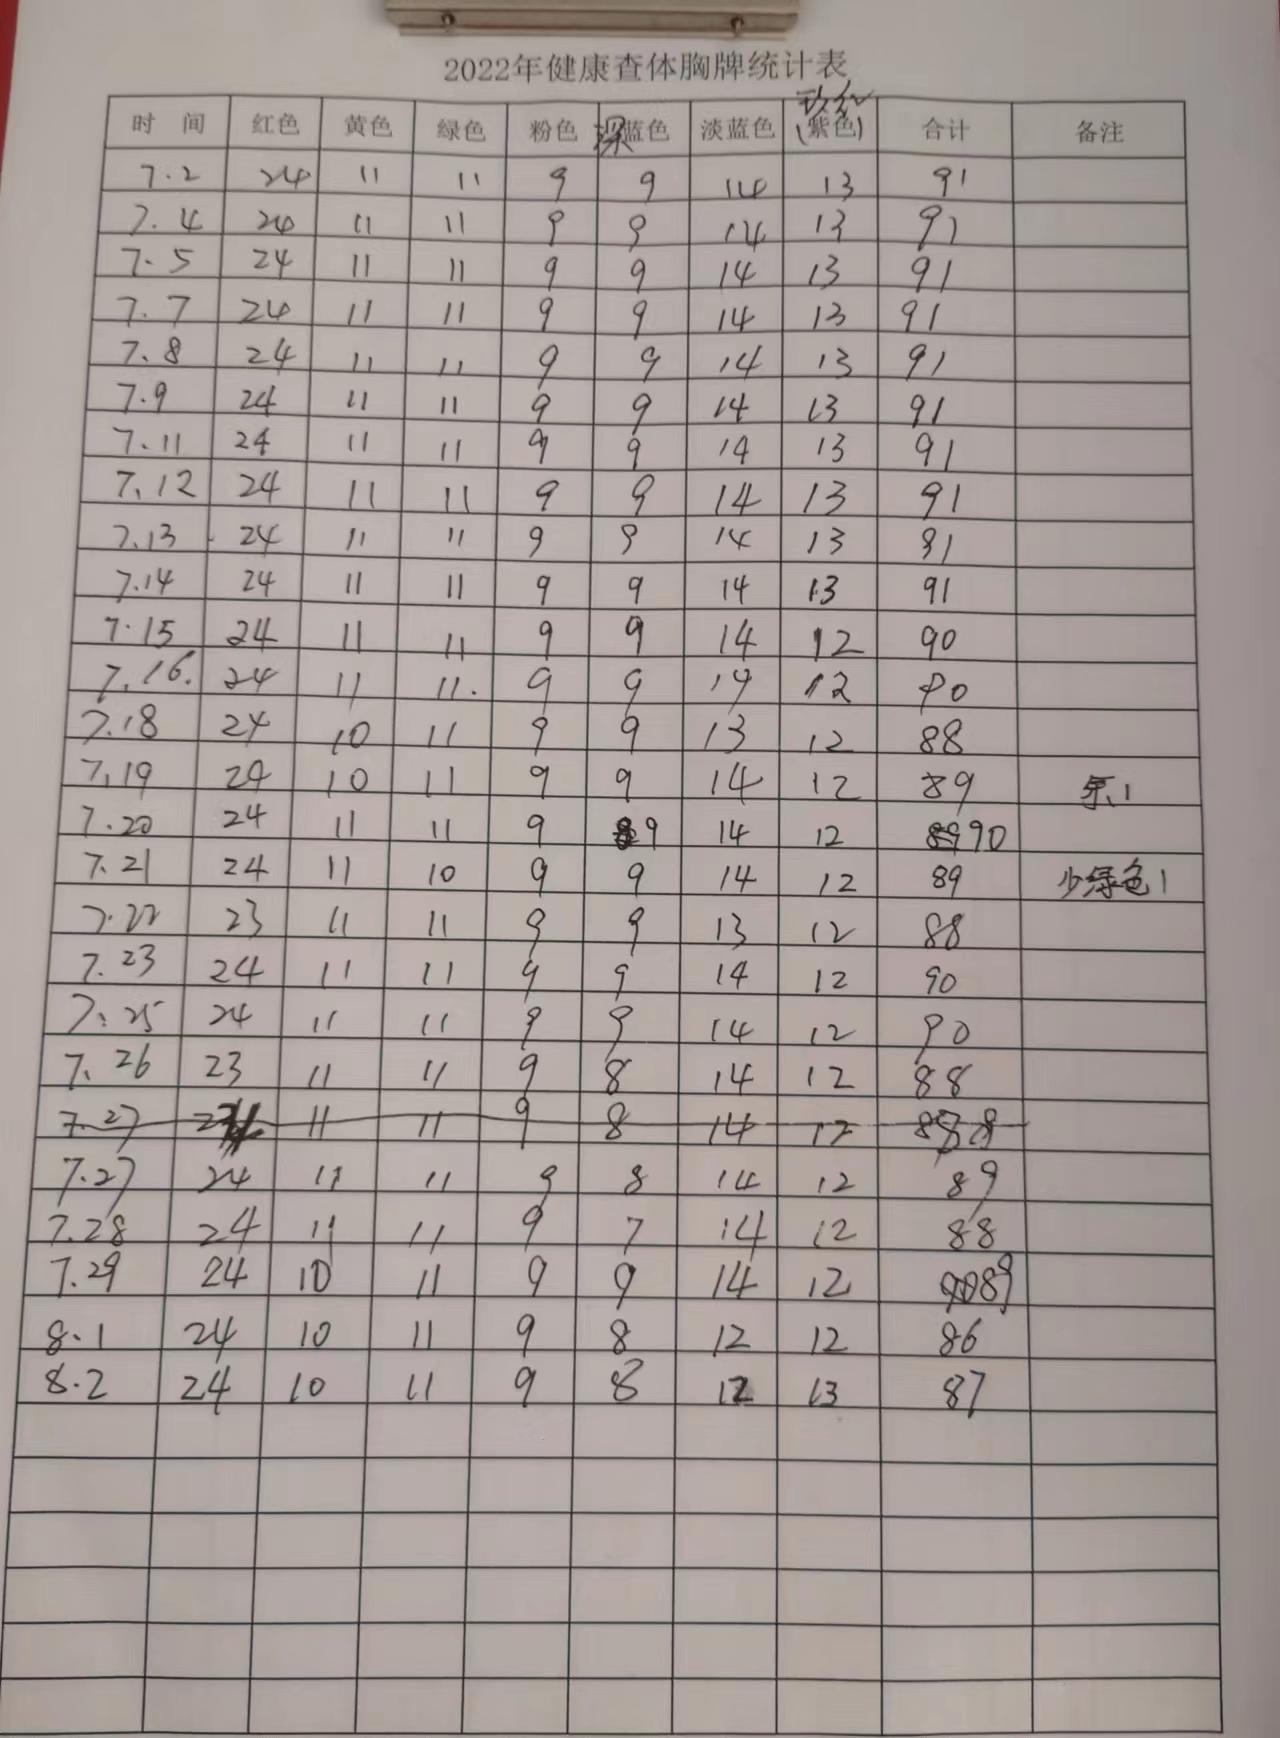 2022年健康查体胸牌统计表
玫红
时 间 红色 黄色 绿色 粉色 深蓝色 淡蓝色 (紫色) 合计 备注
7.2 24 11 11 9 9 14 13 91
7.4 24 11 11 9 9 14 13 91
7.5 24 11 11 9 9 14 13 91
7.7 24 11 11 9 9 14 13 91
7.8 24 11 11 9 9 14 13 91
7.9 24 11 11 9 9 14 13 91
7.11 24 11 11 9 9 14 13 91
7.12 24 11 11 9 9 14 13 91
7.13 24 11 11 9 9 14 13 91
7.14 24 11 11 9 9 14 13 91
7.15 24 11 11 9 9 14 12 90
7.16. 24 11 11. 9 9 14 12 90
7.18 24 10 11 9 9 13 12 88
7.19 24 10 11 9 9 14 12 89 1
7.20 24 11 11 9 9 14 12 90
7.21 24 11 10 9 9 14 12 89 少绿色1
7.22 23 11 11 9 9 13 12 88
7.23 24 11 11 9 9 14 12 90
7.25 24 11 11 9 9 14 12 90
7.26 23 11 11 9 8 14 12 88
7.27 11 11 9 8 14 12
7.27 24 11 11 9 8 14 12 89
7.28 24 11 11 9 7 14 12 88
7.29 24 10 11 9 9 14 12 89
8.1 24 10 11 9 8 12 12 86
8.2 24 10 11 9 8 12 13 87